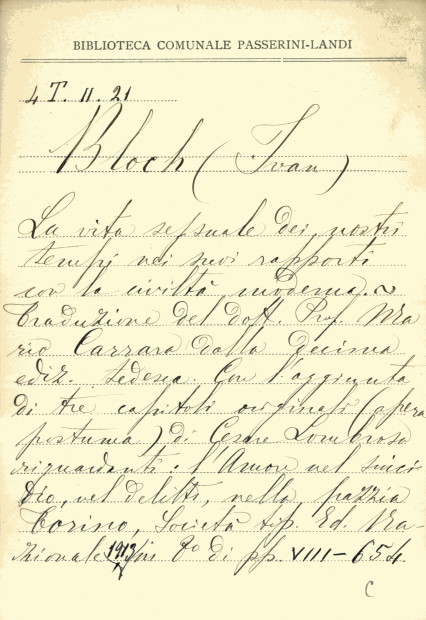 BIBLIOTECA COMUNALE PASSERINI-LANDI
4 T. II. 21
Bloch (Ivan)
La vita sessuale dei nostri
tempi nei suoi rapporti
con la civiltà moderna. ~
Traduzione del dott. Prof. Ma-
rio Carrara dalla decima
ediz. tedesca. Con l'aggiunta
di tre capitoli originali (opera
postuma) di Cesare Lombroso
riguardanti: l'Amore nel suici-
dio, nel delitto, nella pazzia
Torino, Società tip. Ed. Na-
zionale 1913 in 8º di pp. VIII-654
C